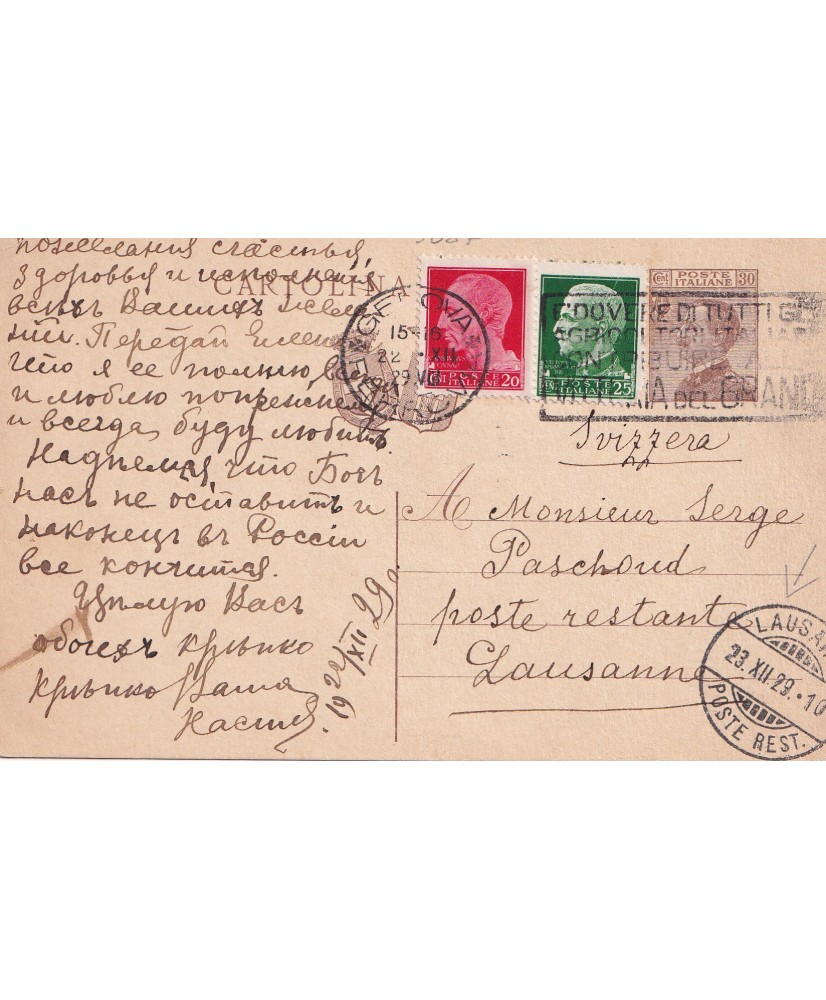 пожелания счастья,
здоровья и исполнен
всѣхъ Вашихъ жела
ній. Передай Елен
что я ее помню
и люблю попрежнем
и всегда буду любить.
Надѣемся, что Богъ
насъ не оставитъ и
наконецъ въ Россіи
все кончится.
Цѣлую Васъ
обоихъ крѣпко
крѣпко Ваша
Настя.
1922/XII 29
CARTOLINA
GENOVA
15-16
22 · XII
29 VIII
FERROVIA
POSTE
ITALIANE
20
POSTE
ITALIANE
25
Cent
POSTE
ITALIANE
30
È DOVERE DI TUTTI GL
AGRICOLTORI ITALIA
DEL GRANO
Svizzera
A Monsieur Serge
Paschoud
poste restante
Lausanne
LAUSAN
23.XII.29.·10
POSTE REST.